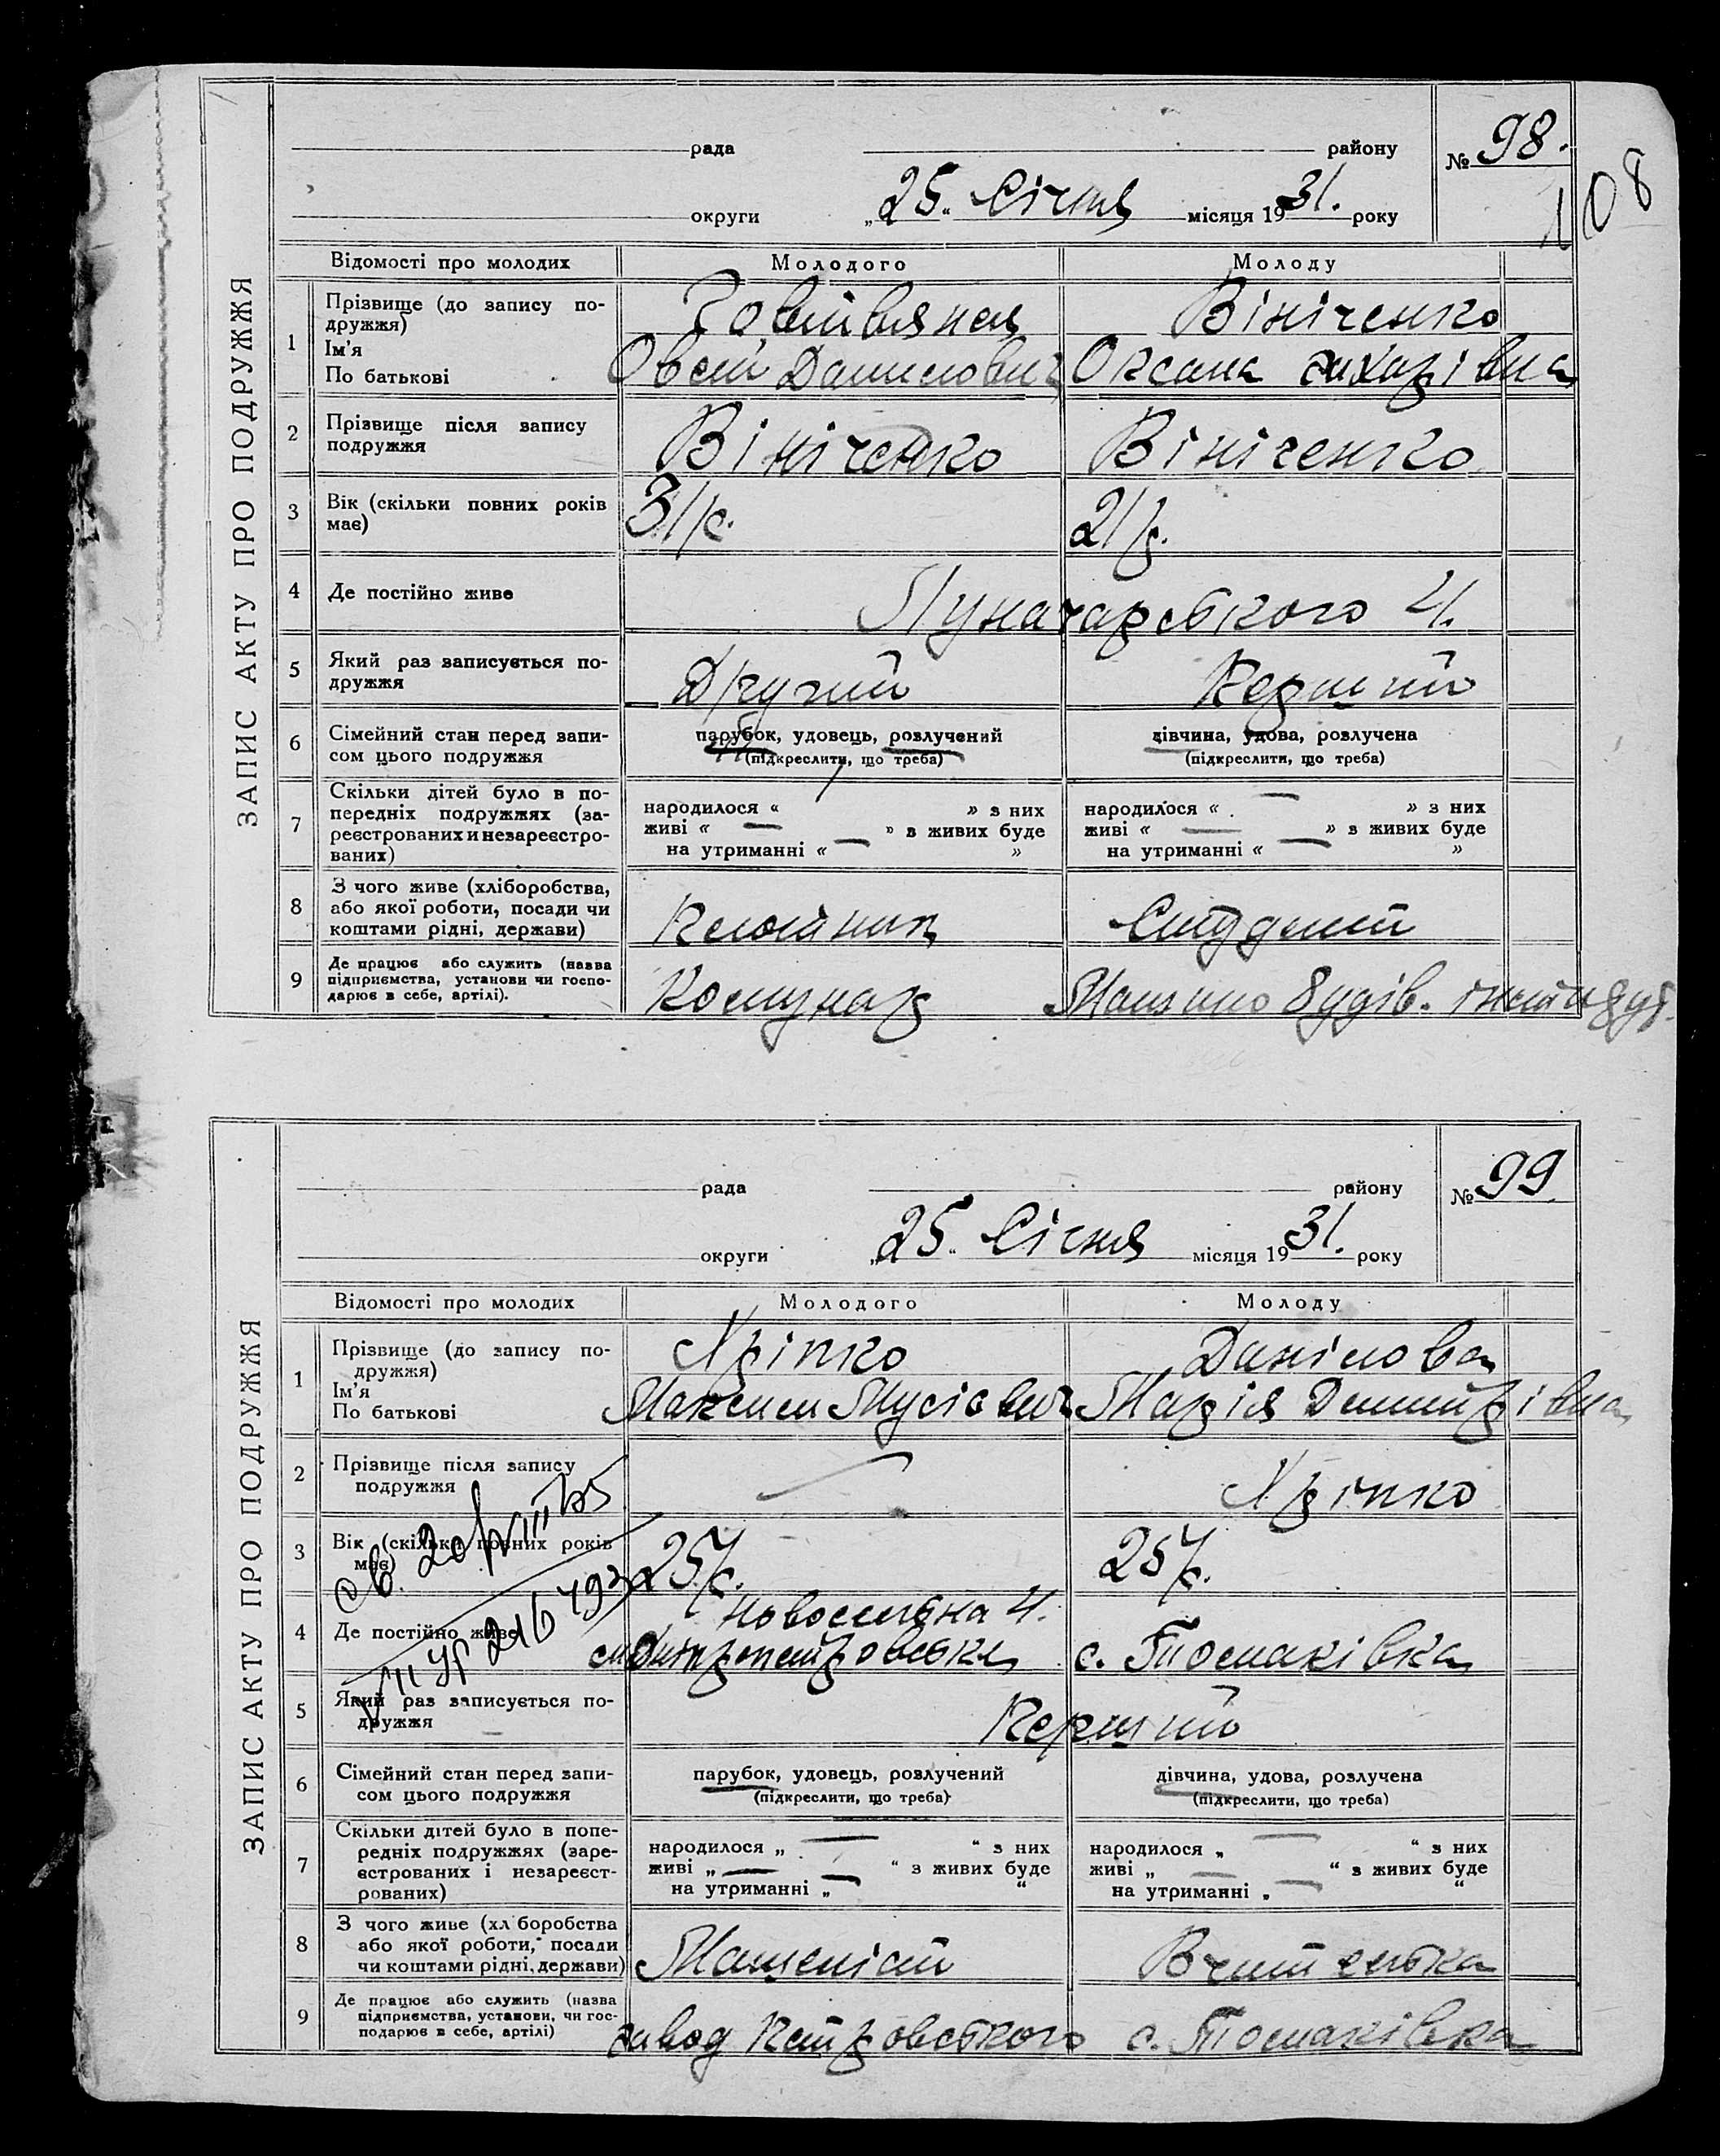 ЗАПИС АКТУ ПРО ПОДРУЖЖЯ
рада района
району
№ 98.
108
округи „25„ Січня місяця 1931. року
Відомості про молодих Молодого Молоду
1 Прізвище (до запису по-
дружжя)
Ім’я
По батькові
Вініченко
Овсій Данилович Оксана Захарівна
2 Прізвище після запису
подружжя
Вініченко Вініченко
3 Вік (скільки повних років
має)
31 р. 21 р.
4 Де постійно живе Луначарського 4.
5 Який раз записується по-
дружжя
Другий Перший
6 Сімейний стан перед запи-
сом цього подружжя
парубок, удовець, розлучений дівчина, удова, розлучена
(підкреслити, що треба) (підкреслити, що треба)
7 Скільки дітей було в по-
передніх подружжях (за-
реєстрованих и незареєстро-
ваних)
народилося « » з них народилося « » з них
живі « » з живих буде живі « » з живих буде
на утриманні « » на утриманні « »
8 З чого живе (хліборобства,
або якої роботи, посади чи
коштами рідні, держави)
Студент
9 Де працює або служить (назва
підприємства, установи чи госпо-
дарює в себе, артілі).
Комунар Машино будів.
ЗАПИС АКТУ ПРО ПОДРУЖЖЯ
рада району
№ 99
округи „25„ Січня місяця 1931. року
Відомості про молодих Молодого Молоду
1 Прізвище (до запису по-
дружжя)
Ім’я
По батькові
Хріпко Данілова
Максим Мусієвич Марія Дмитрівна
2 Прізвище після запису
подружжя
Хріпко
3 Вік (скільки повних років
має)
25 р. 25 р.
4 Де постійно живе
Новосельна 4.
с. Томаківка
5 Який раз записується по-
дружжя
Перший
6 Сімейний стан перед запи-
сом цього подружжя
парубок, удовець, розлучений дівчина, удова, розлучена
(підкреслити, що треба) (підкреслити, що треба)
7 Скільки дітей було в попе-
редніх подружжях (заре-
єстрованих і незареєст-
рованих)
народилося „ “ з них народилося „ “ з них
живі „ “ з живих буде живі „ “ з живих буде
на утриманні „ “ на утриманні „ “
8 З чого живе (хліборобства
або якої роботи, посади
чи коштами рідні, держави)
Машиніст Вчителька
9 Де працює або служить (назва
підприємства, установи, чи гос-
подарює в себе, артілі)
завод Петровського с. Томаківка